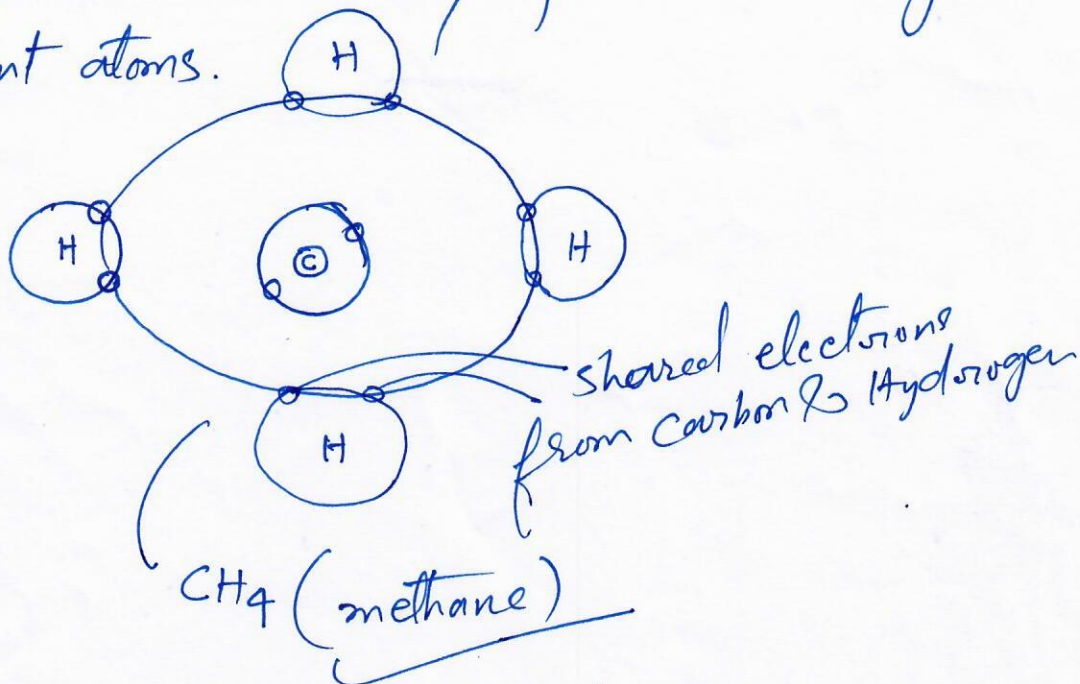 nt atoms.
H
H
C
H
shared electrons
from carbon & Hydrogen
H
CH4 (methane)